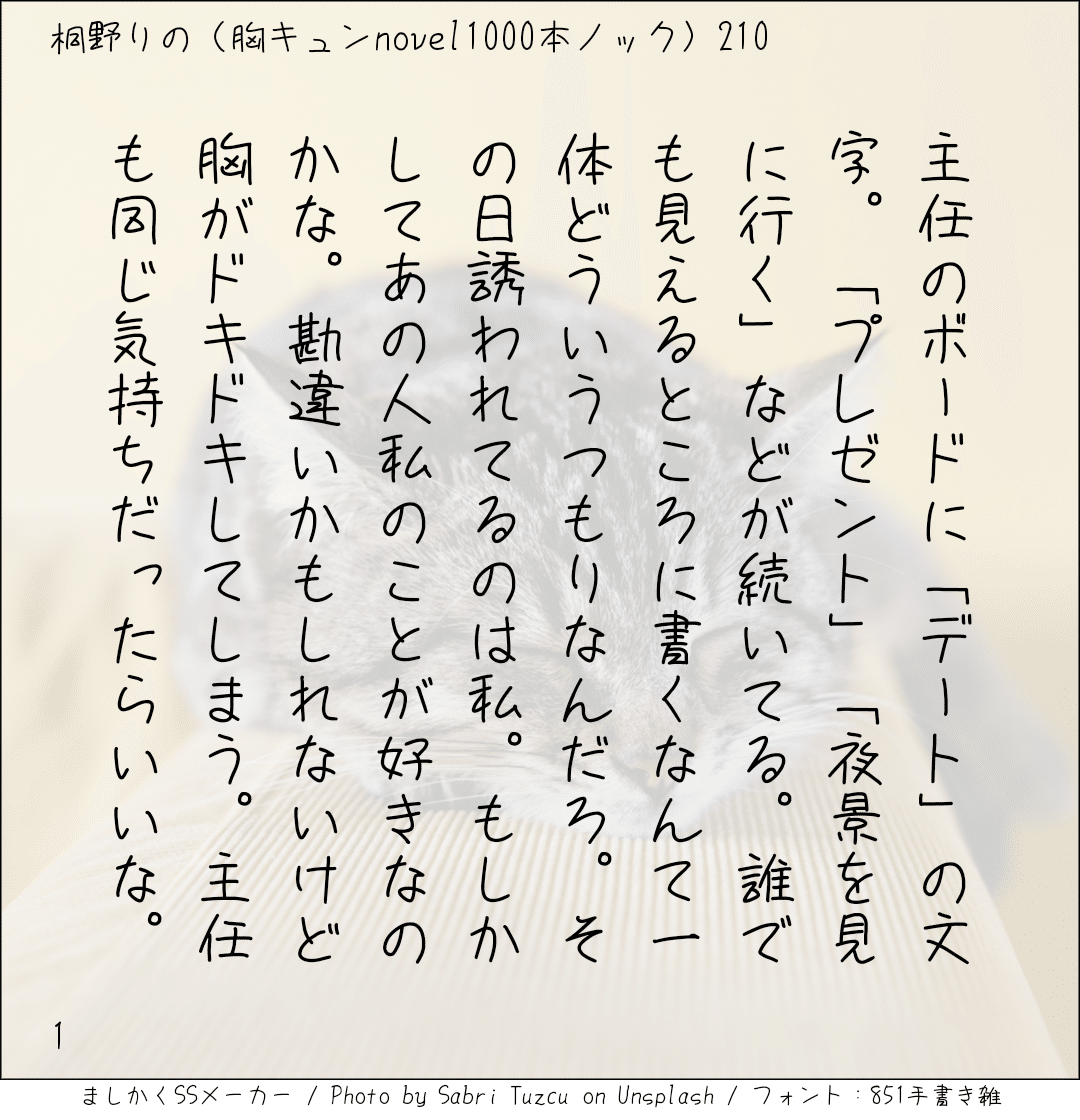 桐野りの（胸キュンnovel1000本ノック）210
主任のボードに「デート」の文
字。「プレゼント」「夜景を見
に行く」などが続いてる。誰で
も見えるところに書くなんて一
体どういうつもりなんだろ。そ
の日誘われてるのは私。もしか
してあの人私のことが好きなの
かな。勘違いかもしれないけど
胸がドキドキしてしまう。主任
も同じ気持ちだったらいいな。
1
ましかくSSメーカー / Photo by Sabri Tuzcu on Unsplash / フォント：851手書き雑